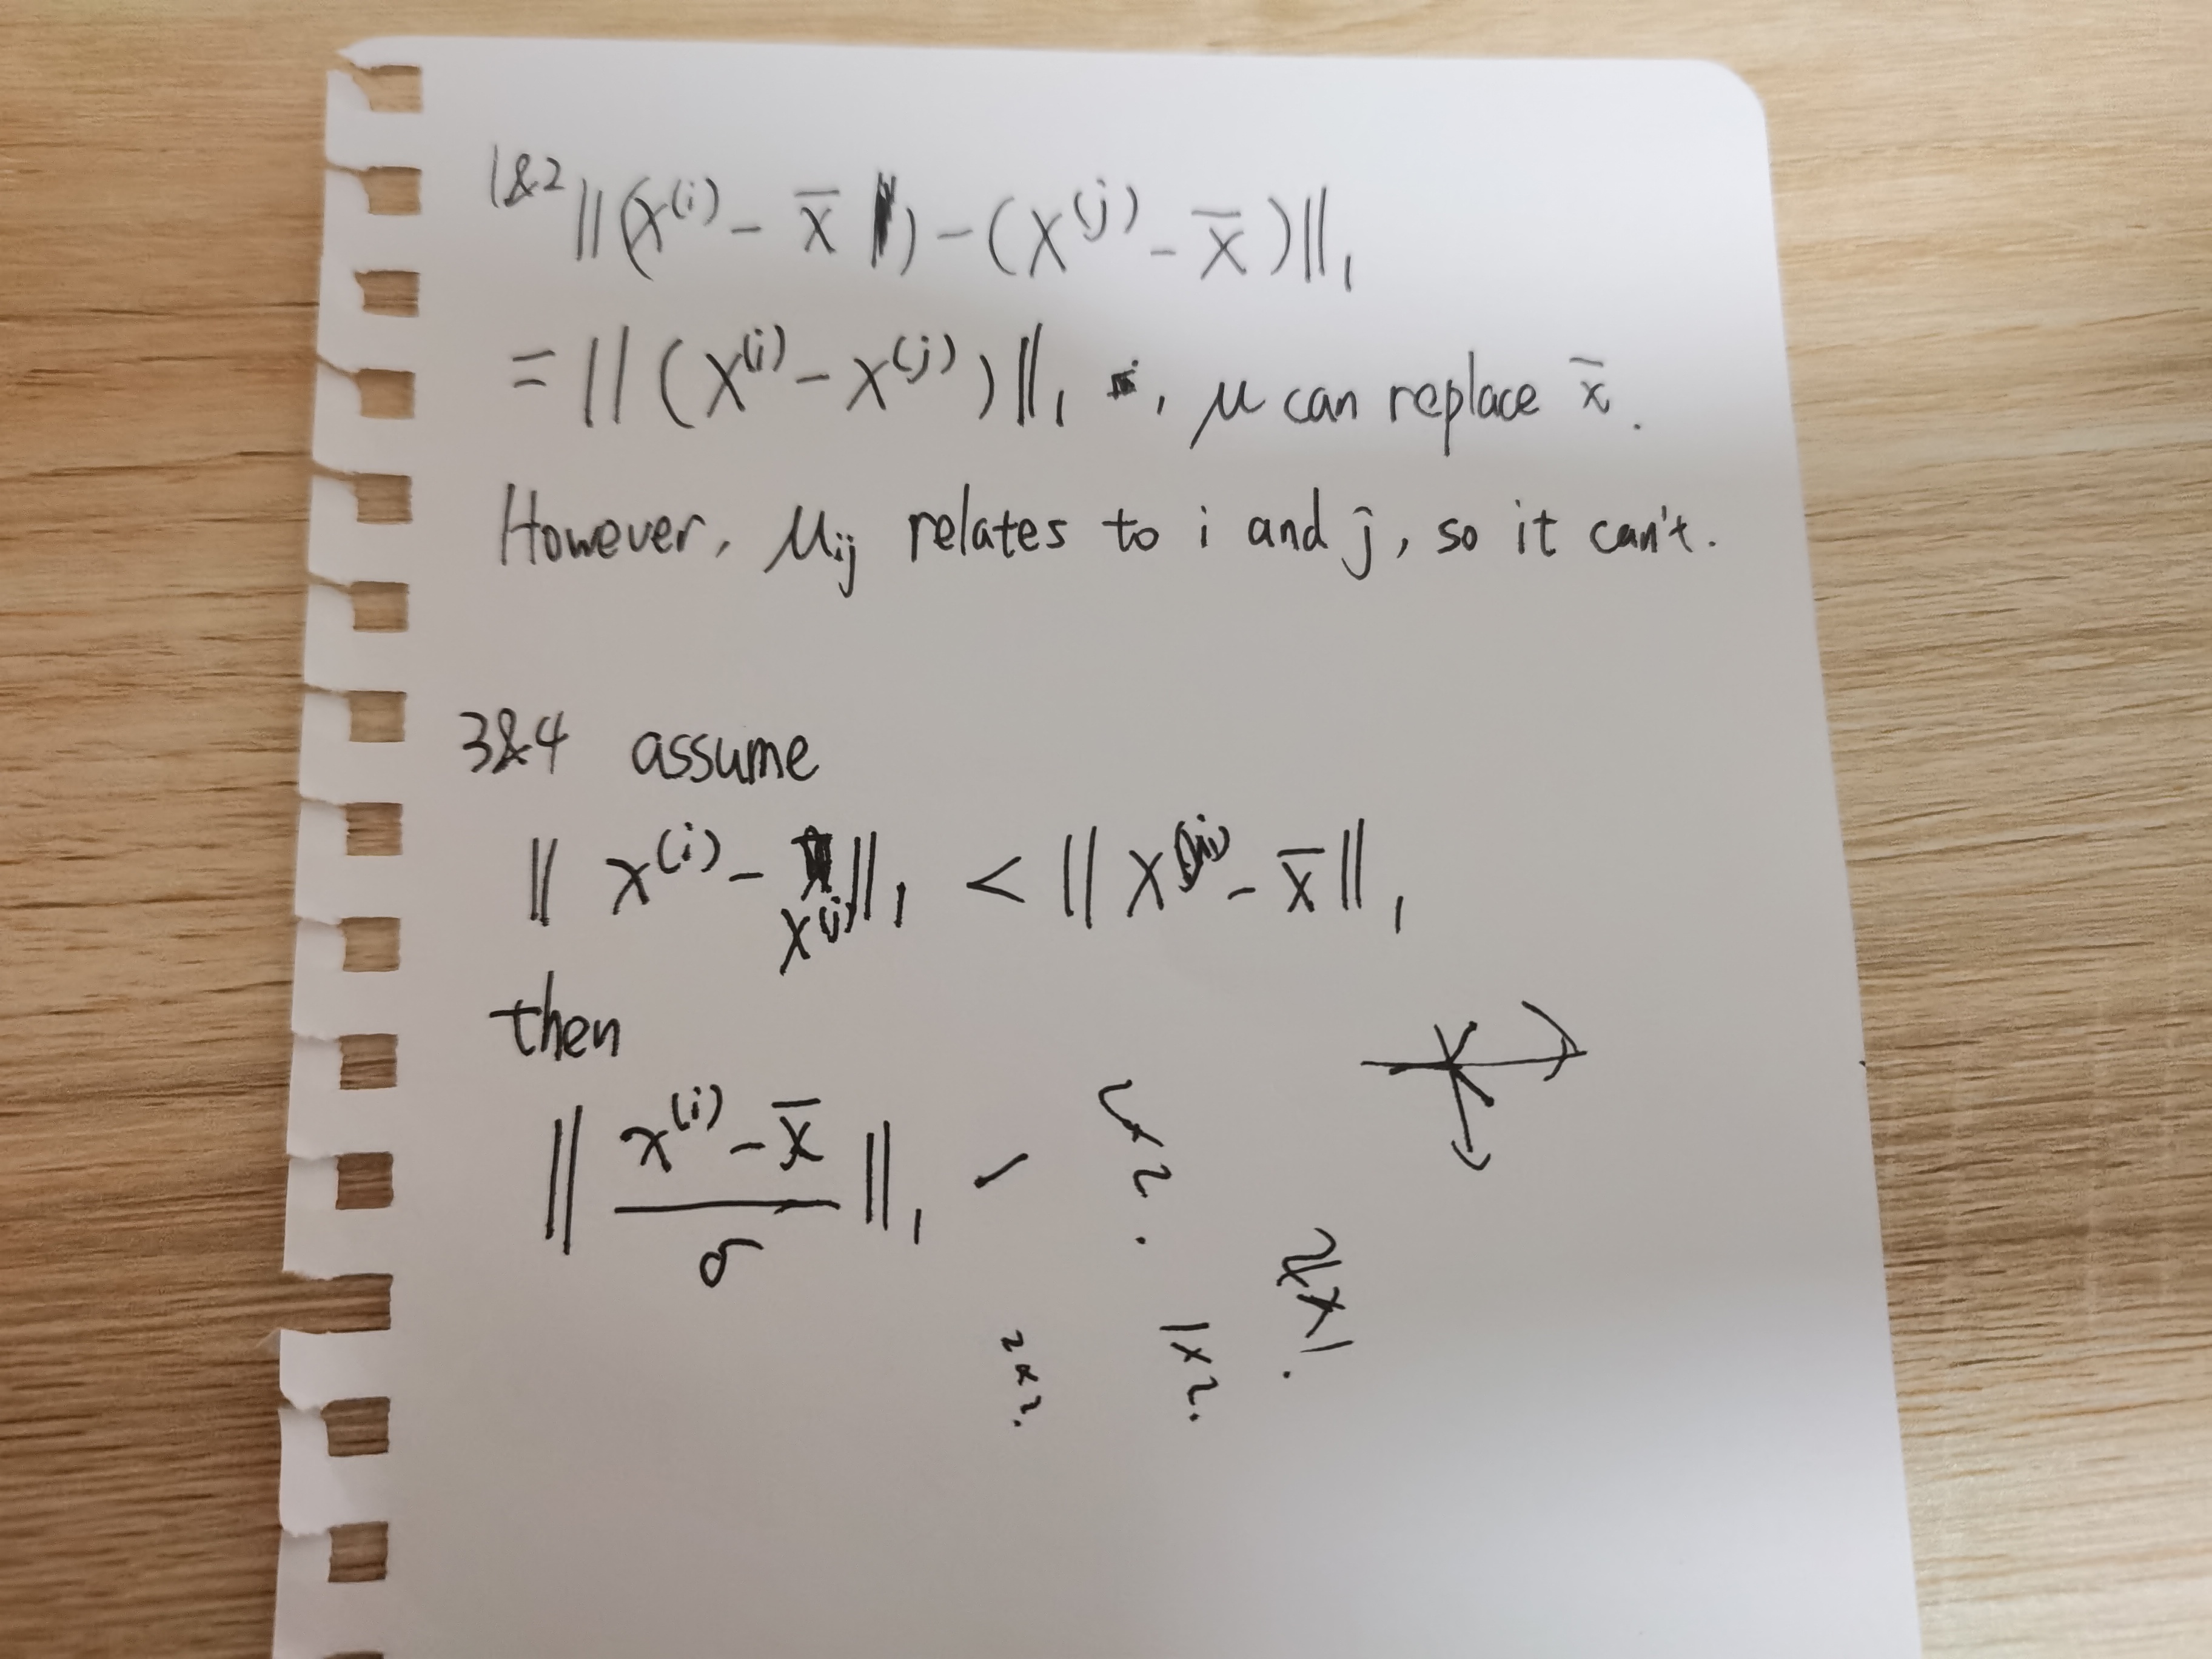 1&2 ||(x^(i) - x̄) - (x^(j) - x̄)||₁
= ||(x^(i) - x^(j))||₁ , μ can replace x̄.
However, μij relates to i and j, so it can't.
3&4 assume
|| x^(i) - x^(j) ||₁ < || x - x̄ ||₁
then
|| (x^(i) - x̄) / σ ||₁
2x2.
1x2.
2x1.